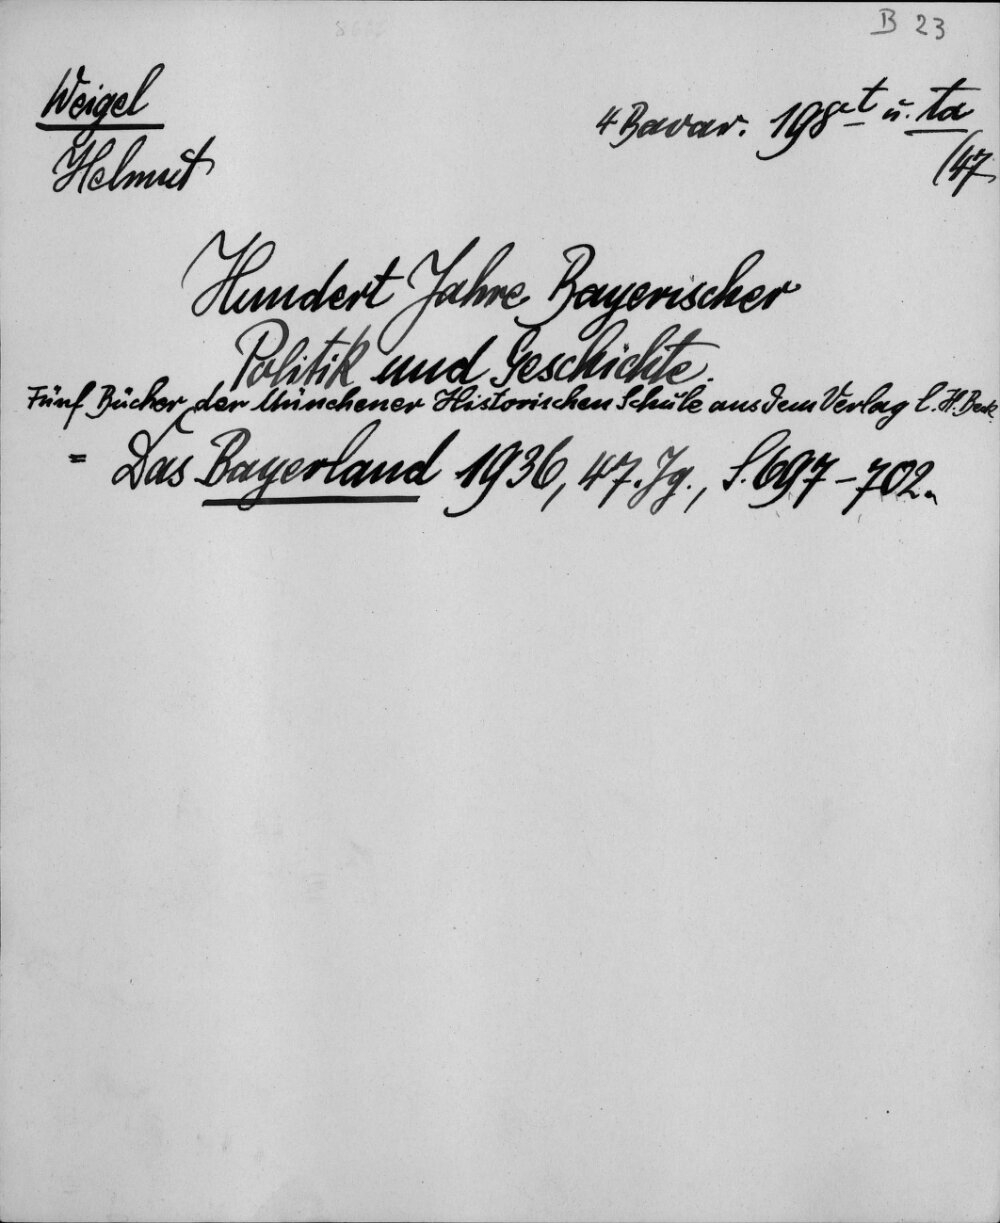 B 23
Weigel
4 Bavar. 198 t u. ta
/47
Helmut
Hundert Jahre Bayerischer
Politik und Geschichte.
Fünf Bücher der Münchener Historischen Schule aus dem Verlag C. H. Beck
= Das Bayerland 1936, 47. Jg., S. 697-702.